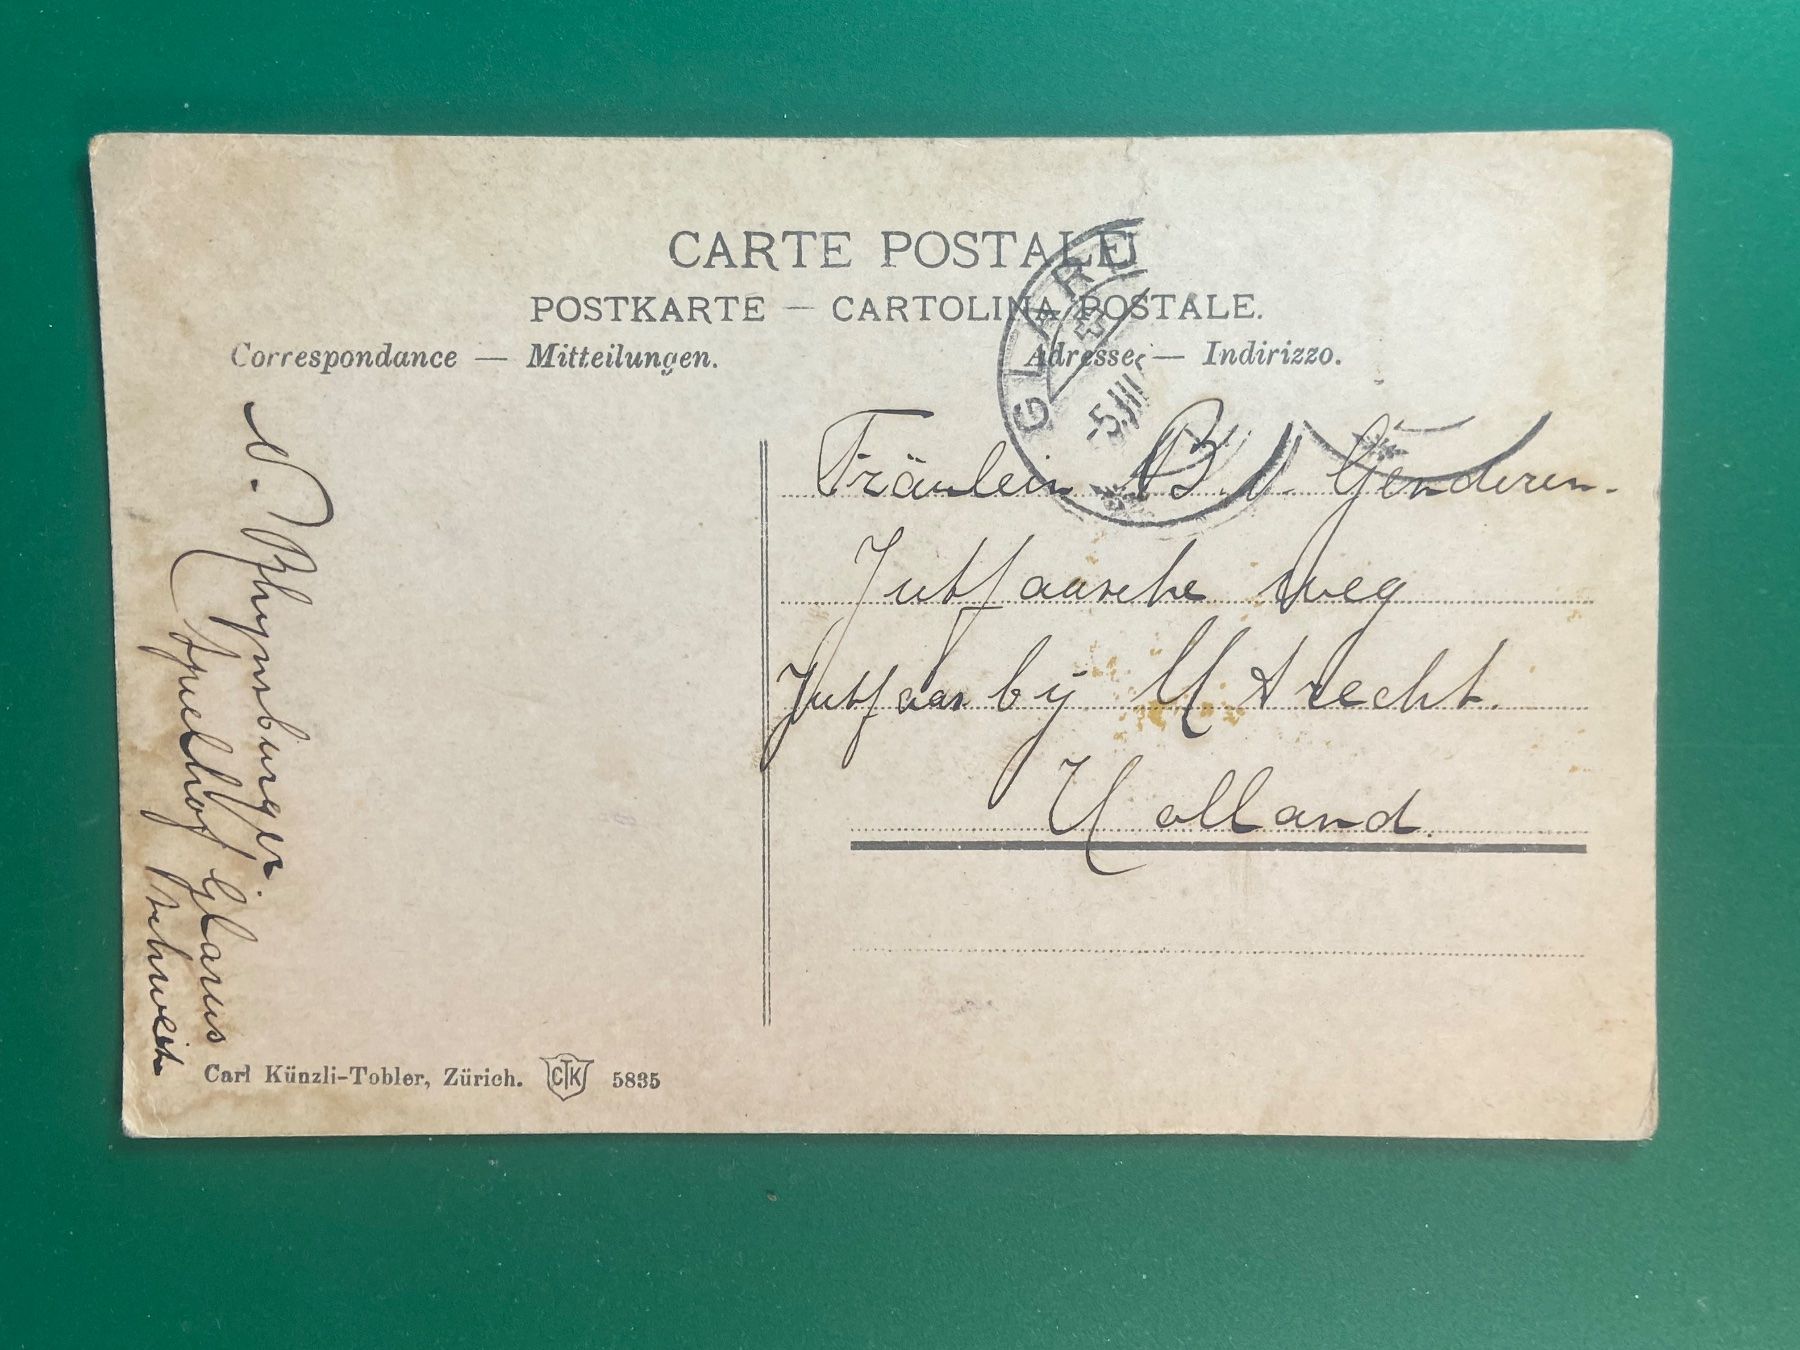 CARTE POSTALE
POSTKARTE — CARTOLINA POSTALE.
Correspondance — Mitteilungen.
Adresse — Indirizzo.
GLARU
-5.III
Fräulein B. v. Genderen.
Jutfaasche weg
Jutfaas bÿ Utrecht.
Holland.
N. Rhynsburger.
Spielhof Glarus
Schweiz
Carl Künzli-Tobler, Zürich. CTK 5835